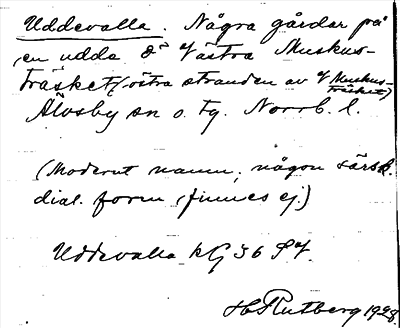 Uddevalla. Några gårdar på
en udde i Västra Muskus-
träsket (östra stranden av V Muskus-
träsket)
Älvsby sn o. tg. Norrb. l.
(Modernt namn, någon särsk.
dial. form finnes ej.)
Uddevalla kG 36 SV.
H Rutberg 1928.